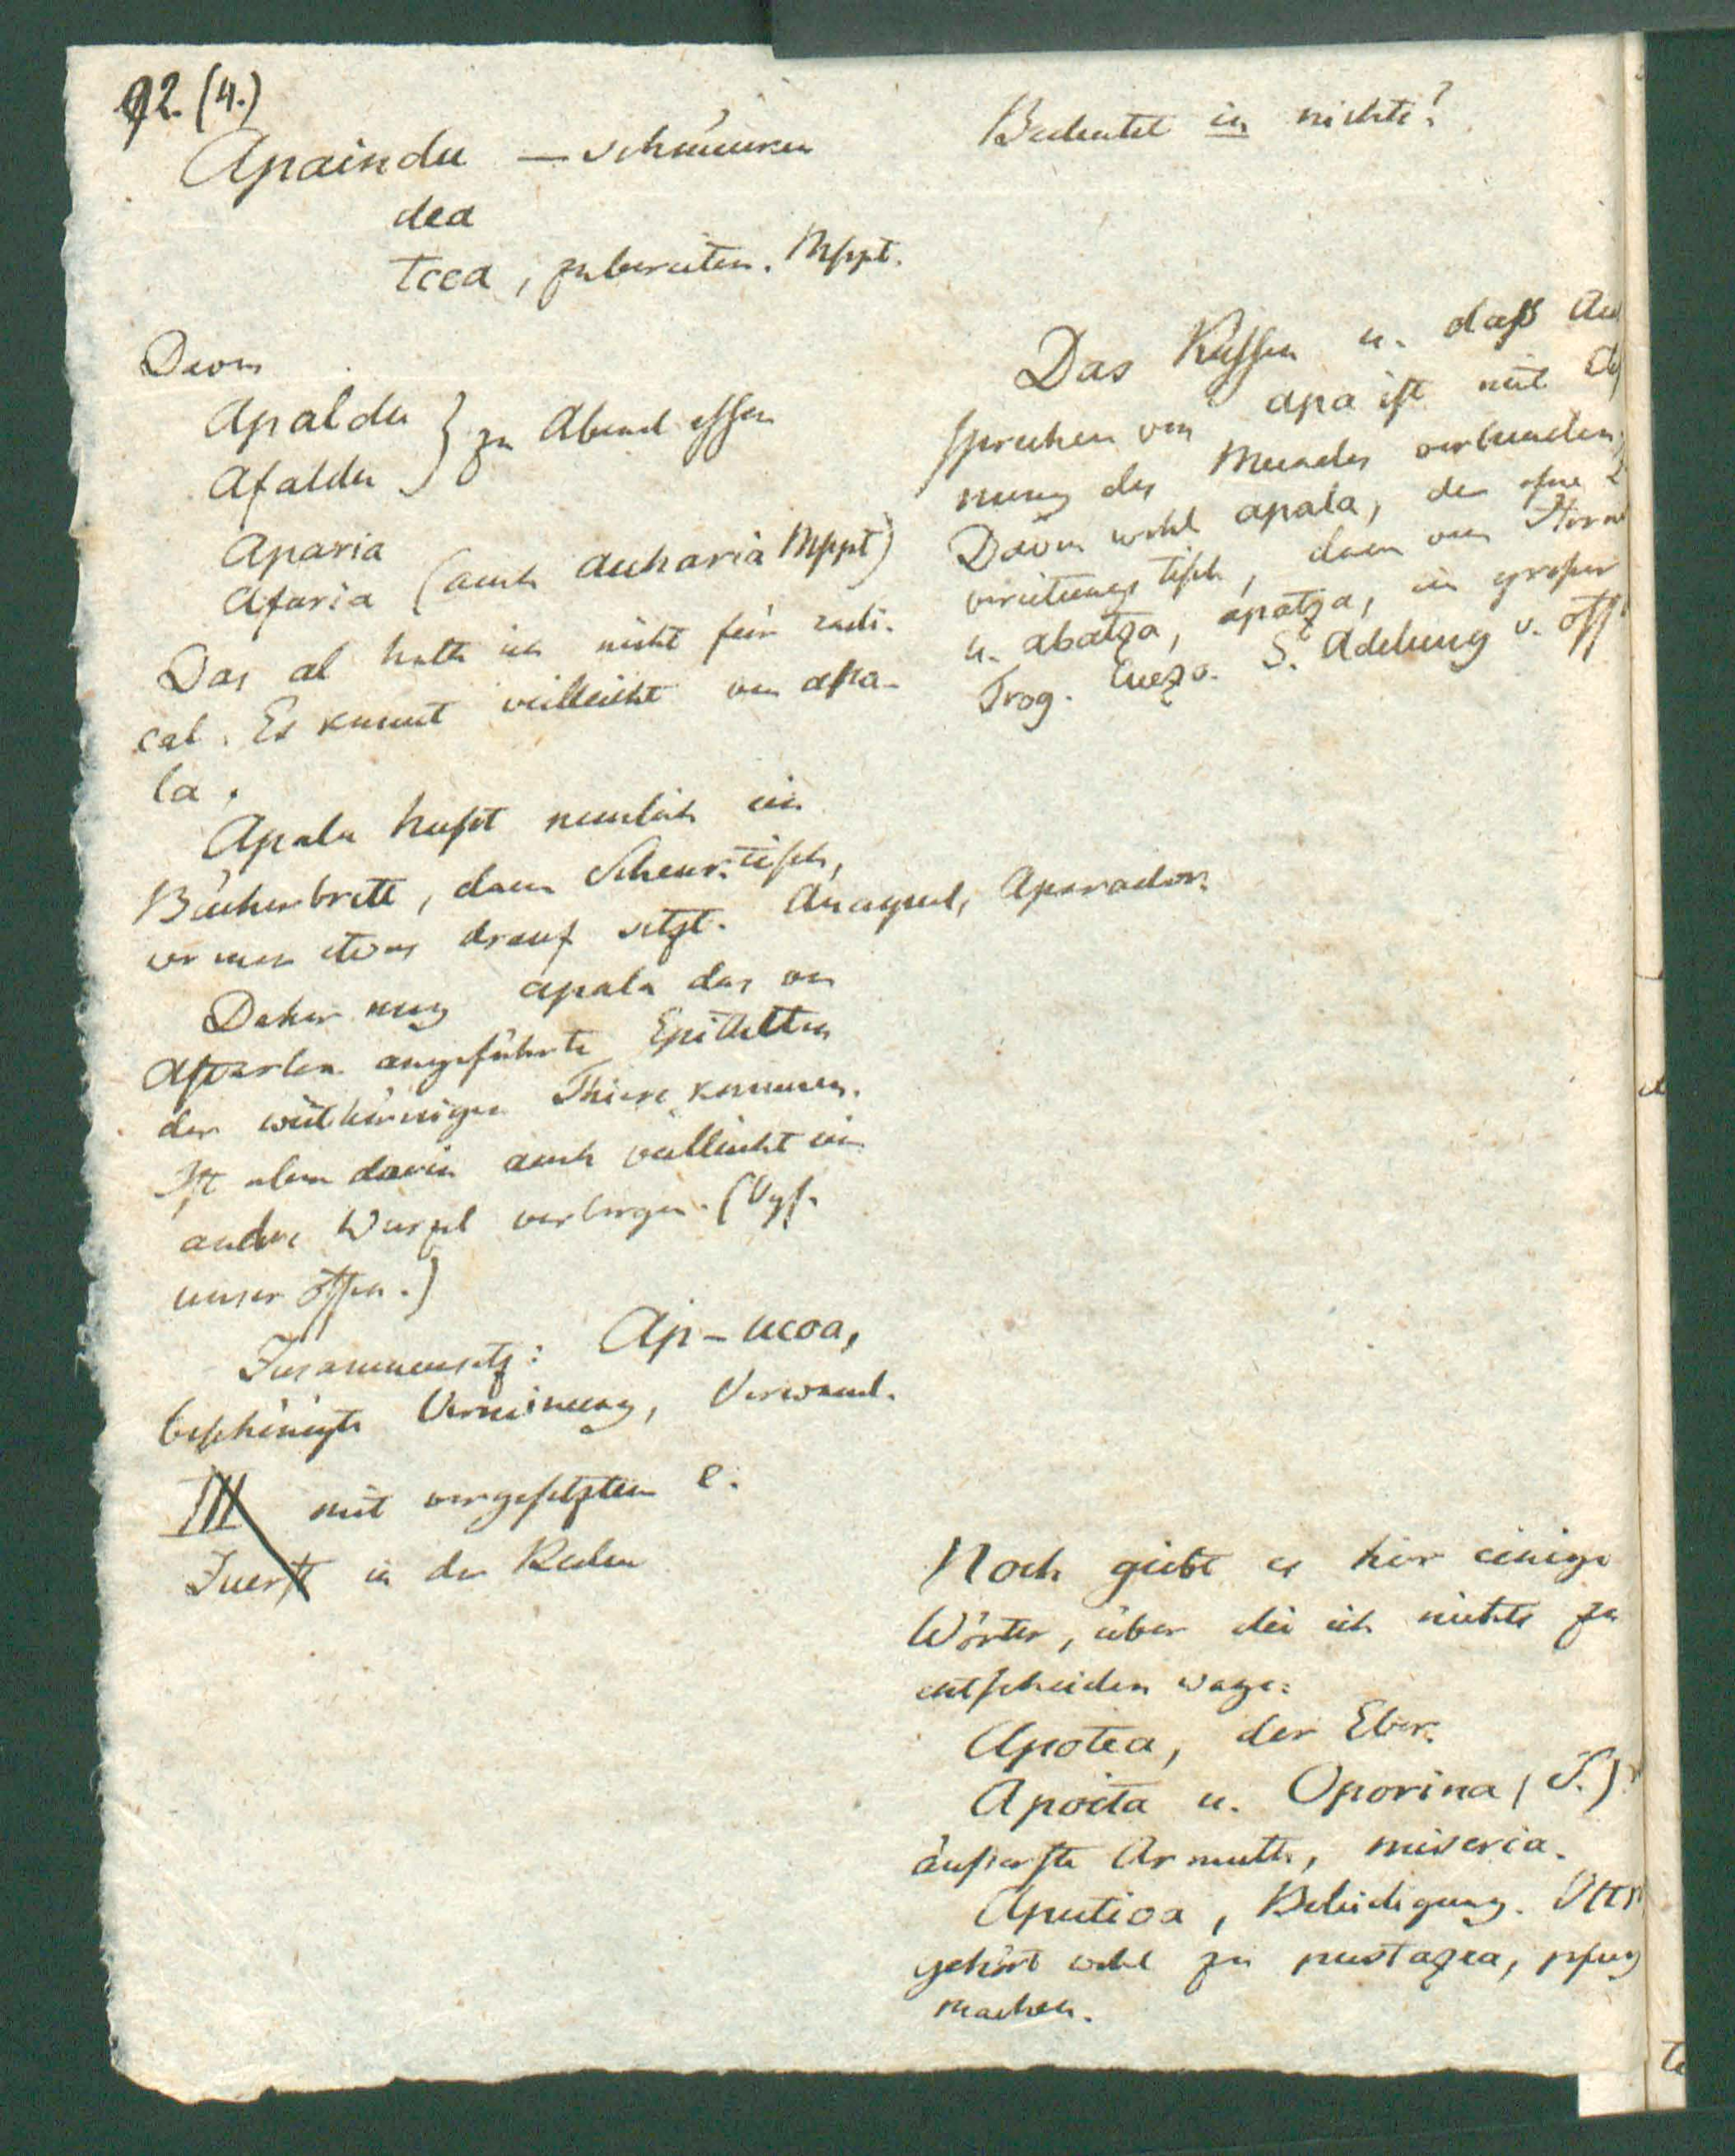 92. (4.)
Apaindu — schmücken
dea
tcea, zubereiten. Mppt.
Davon
Apaldu } zu Abend essen
Afaldu
Aparia
Afaria (auch Auharia Mppt)
Das al halte ich nicht für radi-
cal. Es kommt vielleicht von apa-
la.
Apala heißt nemlich ein
Bücherbrett, dann Schenktisch,
wo man etwas drauf setzt. Anaquel, Aparador.
Daher mag apala das von
Astarloa angeführte Epitheton
der weithörnigen Thiere kommen.
Ist aber darin auch vielleicht ein
andre Wurzel verborgen. (Vgl.
unser offen.)
Zusammensetz: Ap-ucoa,
beschönigte Verneinung, Vorwand.
III mit vorgesetztem e.
Zuerst in der Reden
Bedeutet in nichts?
Das Küssen u. daß Au
sprechen von apa ist mit
nung des Mundes verbunden;
Davon wohl apala, der ofne
breitungs tisch, dann von
u. abatza, apatza, ein großer
Trog. Cuezo. S. Adelung v. off
Noch giebt es hier einige
Wörter, über die ich nichts zu
entscheiden wage:
Apotea, der Eber.
Apoita u. Oporina (S.)
äußerste Armuth, miseria.
Aputioa, Beleidigung.
gehört wohl zu pustazea, pfuy
machen.